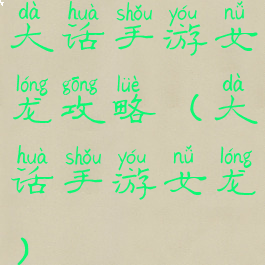 dà huà shǒu yóu nǚ
大话手游女
lóng gōng lüè dà
龙攻略(大
huà shǒu yóu nǚ lóng
话手游女龙
)